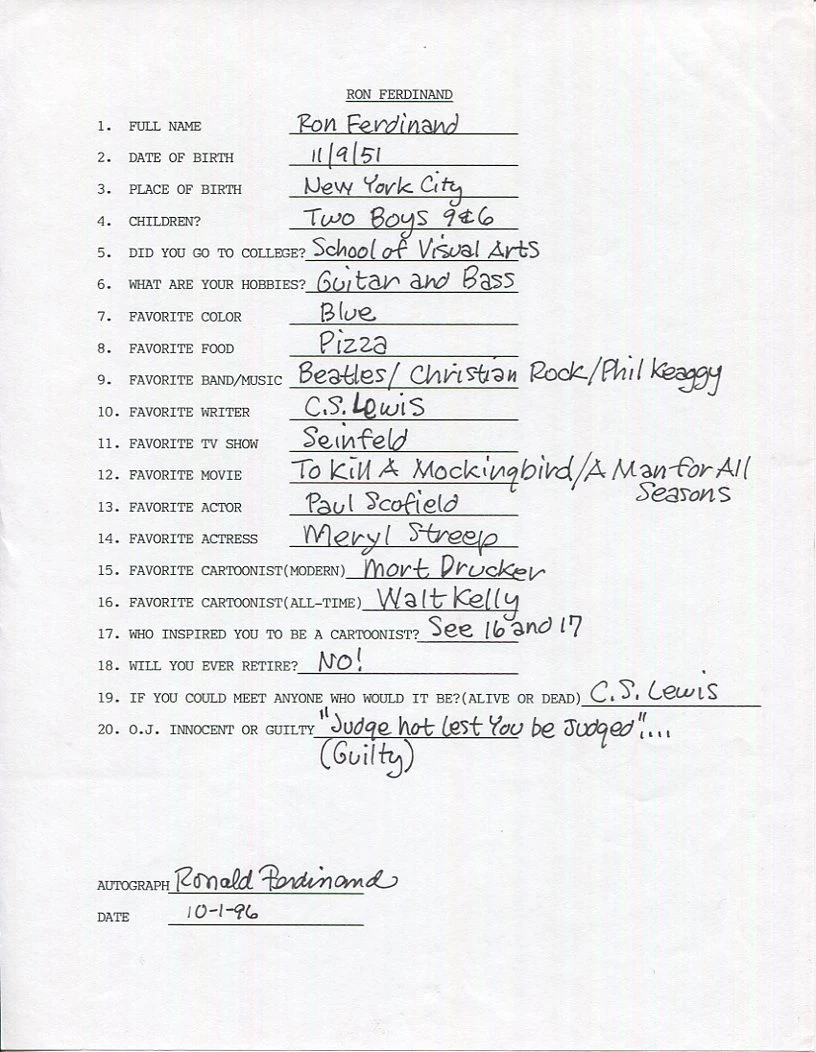 RON FERDINAND
1. FULL NAME Ron Ferdinand
2. DATE OF BIRTH 11/9/51
3. PLACE OF BIRTH New York City
4. CHILDREN? Two Boys 9&6
5. DID YOU GO TO COLLEGE? School of Visual Arts
6. WHAT ARE YOUR HOBBIES? Guitar and Bass
7. FAVORITE COLOR Blue
8. FAVORITE FOOD Pizza
9. FAVORITE BAND/MUSIC Beatles/ Christian Rock/Phil Keaggy
10. FAVORITE WRITER C.S. Lewis
11. FAVORITE TV SHOW Seinfeld
12. FAVORITE MOVIE To Kill A Mockingbird/A Man for All
Seasons
13. FAVORITE ACTOR Paul Scofield
14. FAVORITE ACTRESS Meryl Streep
15. FAVORITE CARTOONIST(MODERN) Mort Drucker
16. FAVORITE CARTOONIST(ALL-TIME) Walt Kelly
17. WHO INSPIRED YOU TO BE A CARTOONIST? See 16 and 17
18. WILL YOU EVER RETIRE? NO!
19. IF YOU COULD MEET ANYONE WHO WOULD IT BE?(ALIVE OR DEAD) C.S. Lewis
20. O.J. INNOCENT OR GUILTY "Judge not lest You be Judged"....
(Guilty)
AUTOGRAPH Ronald Ferdinand
DATE 10-1-96